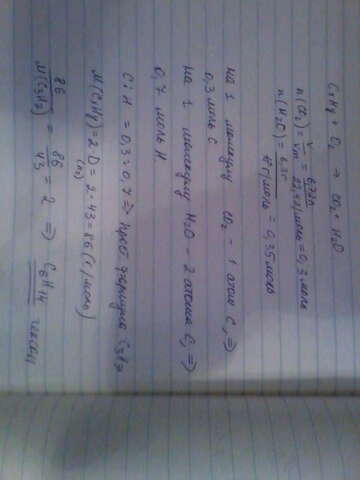 CxHy + O2 → CO2 + H2O
n(CO2) = V/Vm = 6,72л/22,4л/моль = 0,3 моль
n(H2O) = 6,3г/18г/моль = 0,35 моль
на 1 молекулу CO2 - 1 атом C, ⇒
0,3 моль C
на 1 молекулу H2O - 2 атома C, ⇒
0,7 моль H
C : H = 0,3 : 0,7 ⇒ прост. формула C3H7
M(CxHy) = 2·D(H2) = 2·43 = 86 (г/моль)
86/M(C3H7) = 86/43 = 2 ⇒ C6H14 гексан